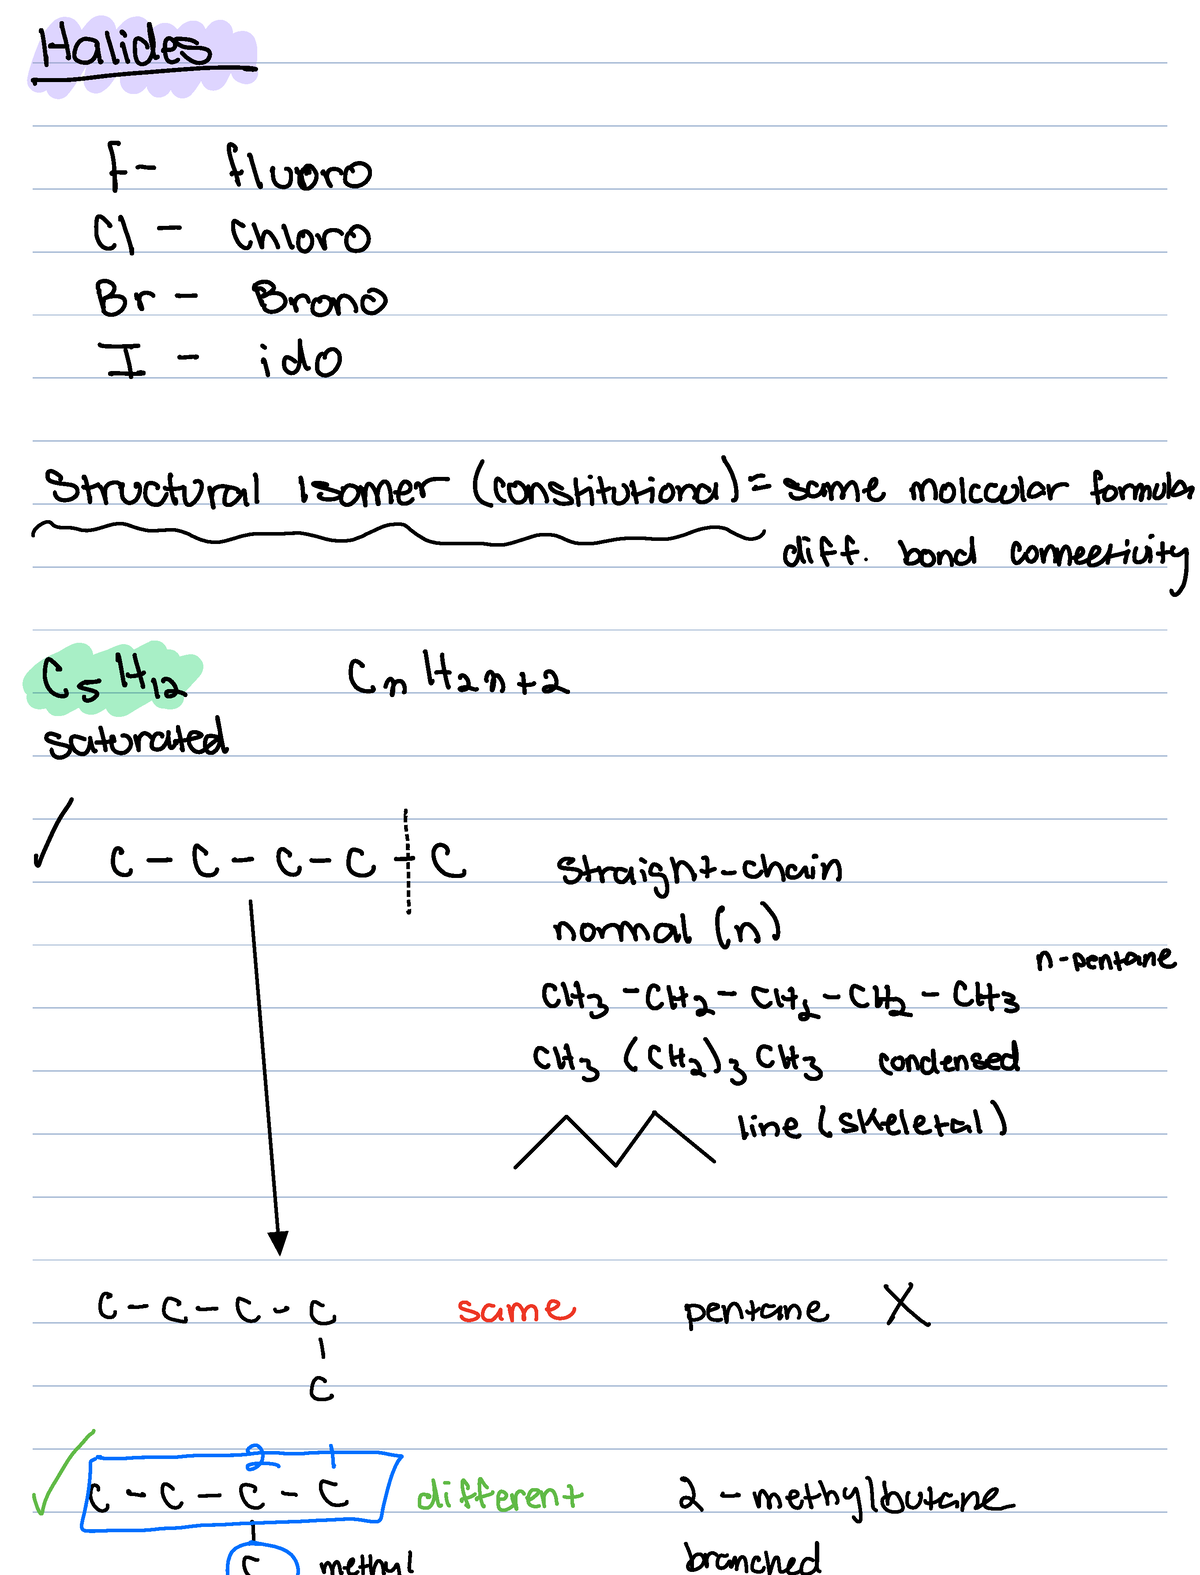 Halides
F- fluoro
Cl - Chloro
Br - Brono
I - ido
Structural Isomer (constitutional) = same molccular formula
diff. bond connectivity
C5H12 CnH2n+2
saturated
✓ C - C - C - C + C Straight-chain
normal (n)
n-pentane
CH3 - CH2 - CH2 - CH2 - CH3
CH3 (CH2)3 CH3 condensed
line (skeletal)
C - C - C - C same pentane X
|
C
2 1
✓ C - C - C - C different 2 - methylbutane
|
C methyl branched